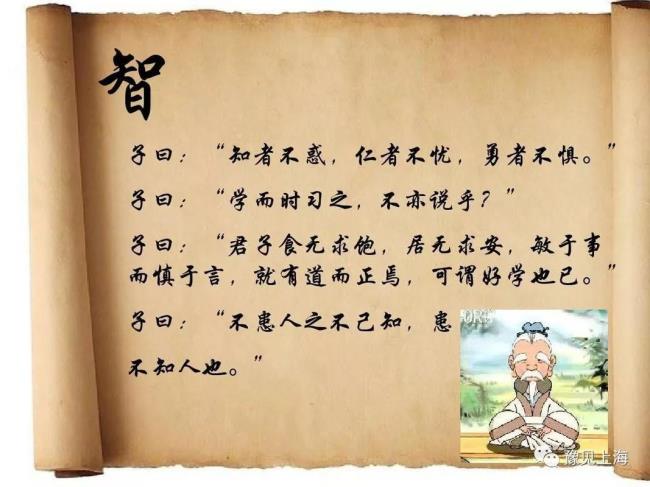 智
子曰：“知者不惑，仁者不忧，勇者不惧。”
子曰：“学而时习之，不亦说乎？”
子曰：“君子食无求饱，居无求安，敏于事
而慎于言，就有道而正焉，可谓好学也已。”
子曰：“不患人之不己知，患
不知人也。”
豫见上海